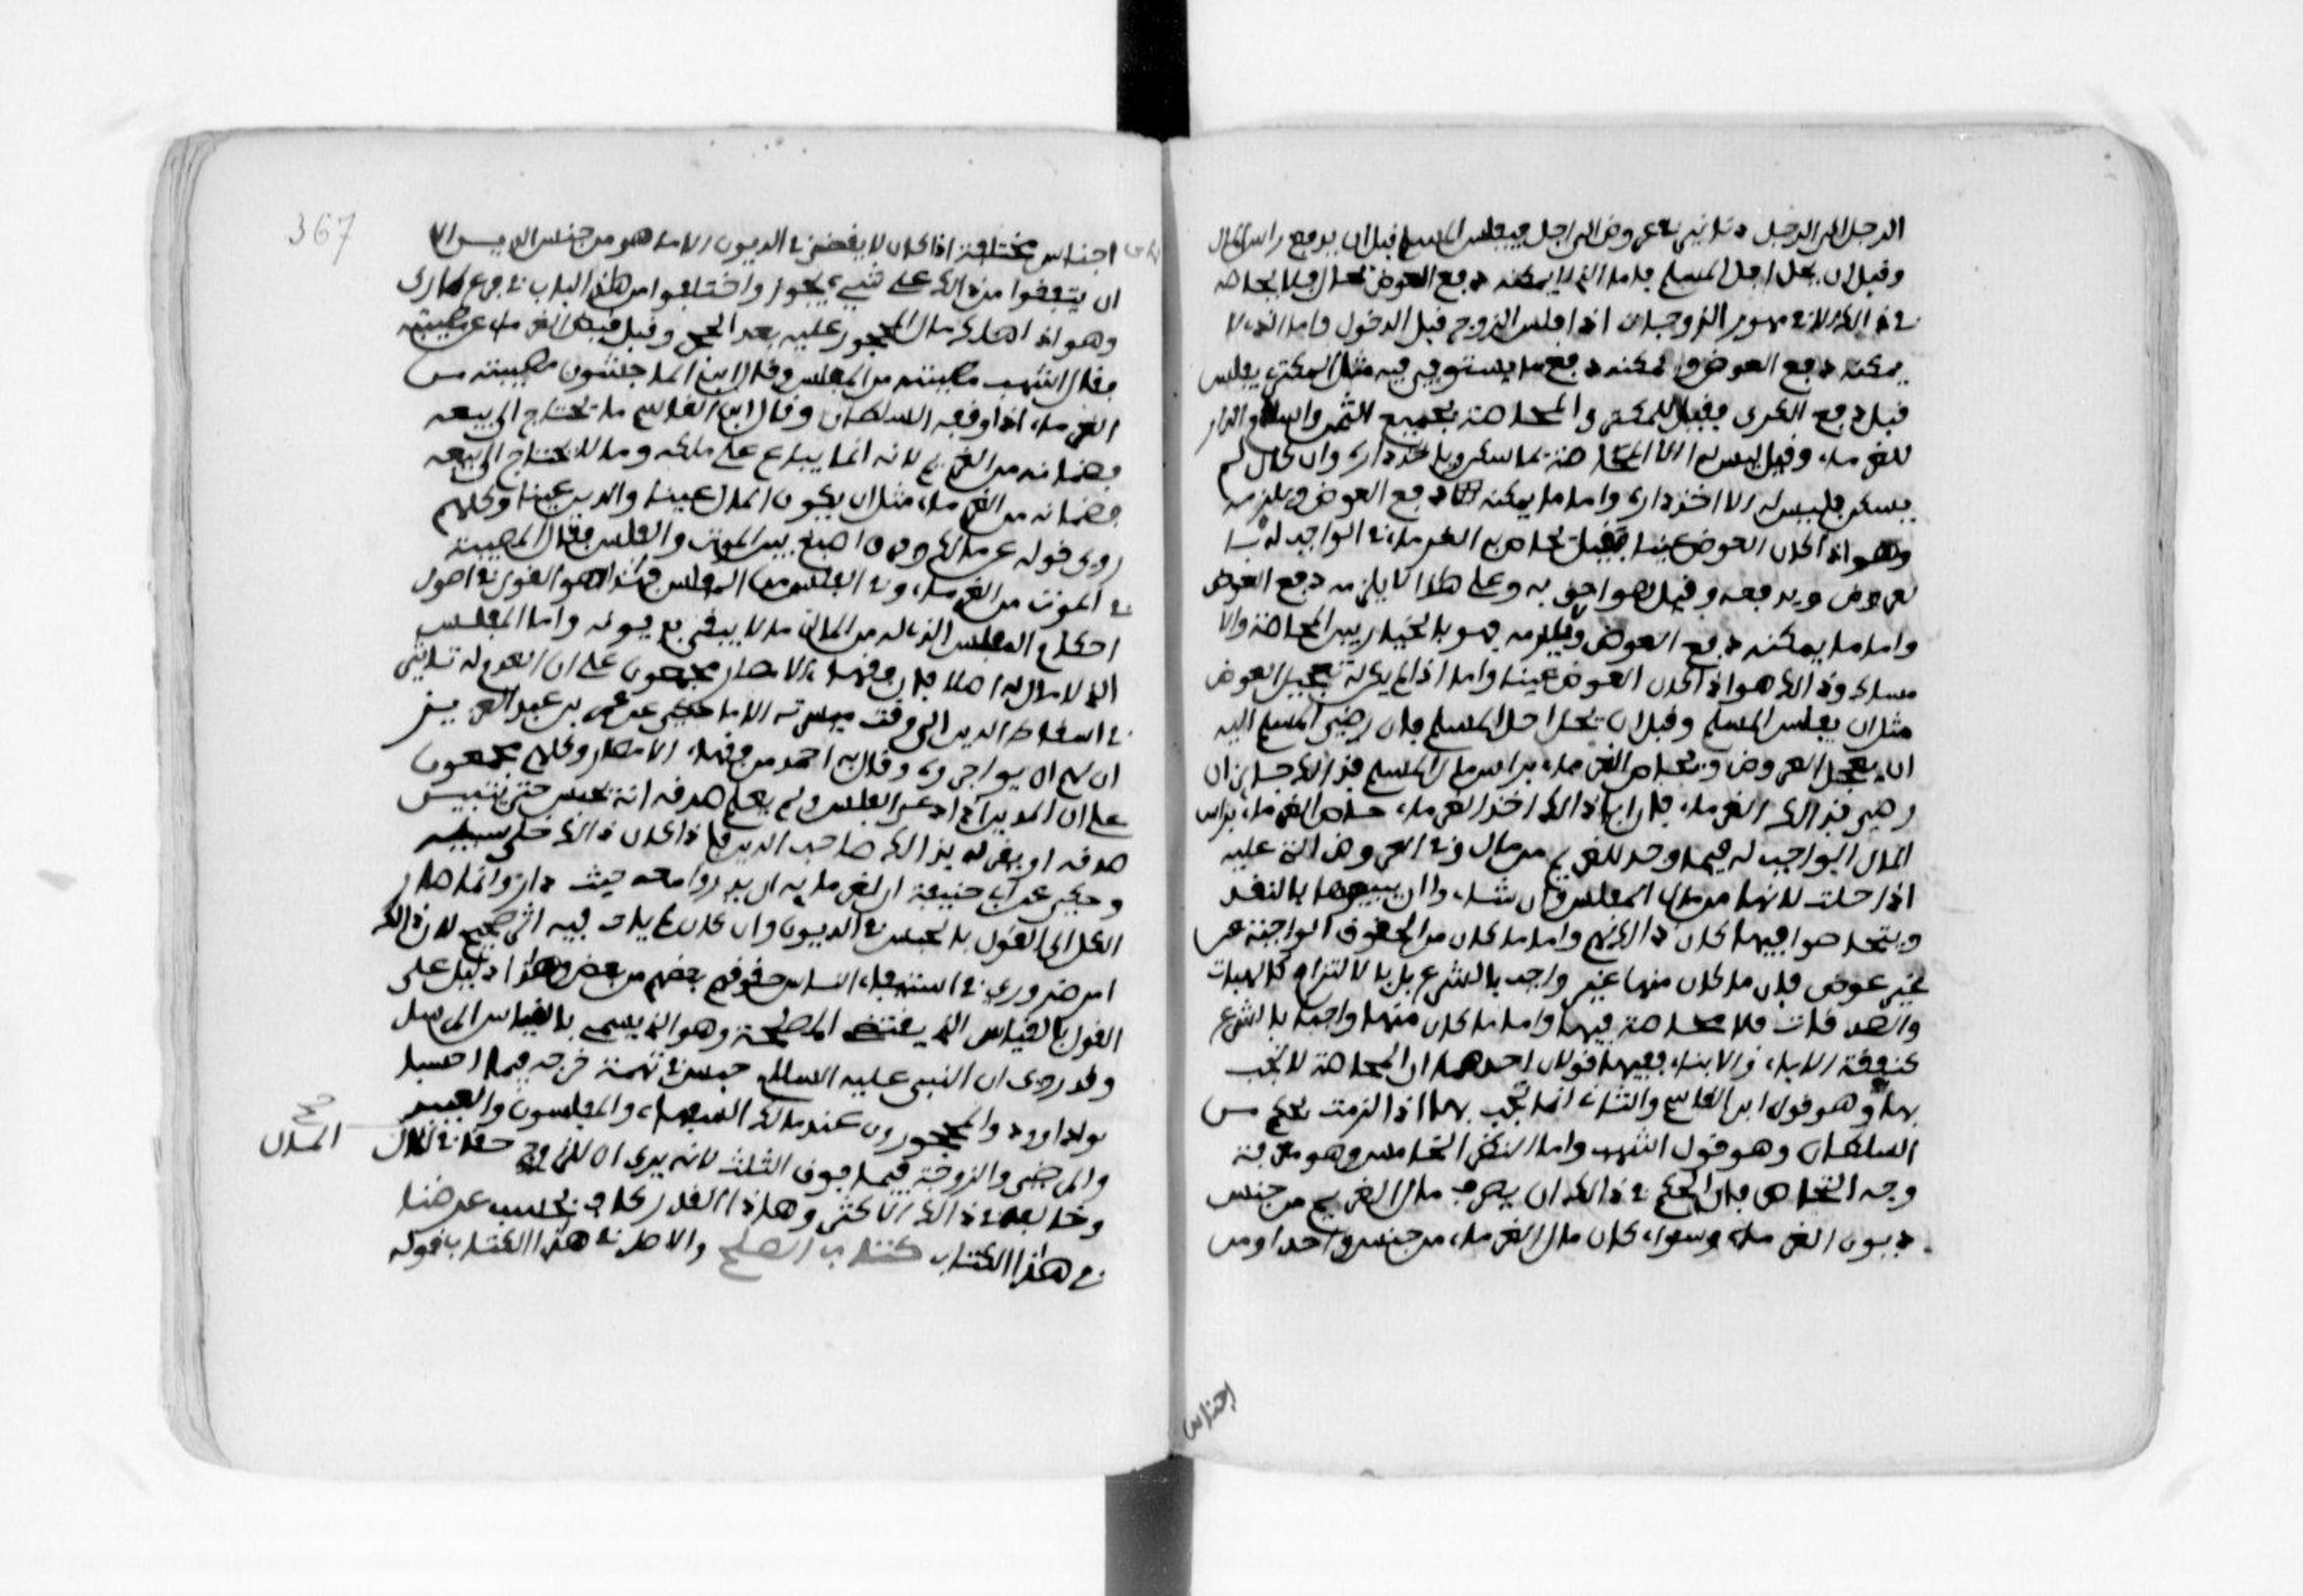 الرجل الى الرجل دنانير في عروض الى اجل فيفلس المسلم قبل ان يدفع راس المال
وقبل ان يحل اجل المسلم فاما الذي لا يمكنه دفع العوض بحال فلا محاصة
في ذالك الا في مهور الزوجات اذا افلس الزوج قبل الدخول واما الذي لا
يمكنه دفع العوض ويمكنه دفع ما يستوفي فيه مثل المكتري يفلس
قبل دفع الكرى فقيل للمكري المحاصة بجميع الثمن واسلام الدار
للغرماء وقيل ليس له الا المحاصة بما سكن وياخذ داره وان كان لم
يسكن فليس له الا اخذ داره واما ما يمكنه دفع العوض ويلزمه
وهو اذا كان العوض عينا فقيل يحاص به الغرماء في الواجب له با
لعروض ويدفعه وقيل هو احق به وعلى هذا لا يلزمه دفع العوض
واما ما يمكنه دفع العوض ولا يلزمه فهو بالخيار بين المحاصة والا
مساك وذالك هو اذا كان العوض عينا واما اذا لم يكن له تعجيل العوض
مثل ان يفلس المسلم وقبل ان يحل اجل المسلم فان رضي المسلم اليه
ان يعجل العروض ويحاص الغرماء براس مال المسلم فذالك جايز ان
رضي بذالك الغرماء فان ابا ذالك احد الغرماء حاص الغرماء براس
المال الواجب له فيما وجد للغريم من مال وفي العروض التي عليه
اذا حلت لانها من مال المفلس وان شاء وا ان يبيعوها بالنقد
ويتحاصوا فيها كان ذالك لهم واما ما كان من الحقوق الواجبة عن
غير عوض فان ما كان منها غير واجب بالشرع بل بالالتزام كالهبات
والصدقات فلا محاصة فيها واما ما كان منها واجبا بالشرع
كنفقة الاباء والابناء ففيها قولان احدهما ان المحاصة لا تجب
بها وهو قول ابن القاسم والثاني انها تجب بها اذا لزمت بحكم من
السلطان وهو قول اشهب واما النظر الخامس وهو معرفة
وجه التحاص فان الحكم في ذالك ان يصرف مال الغريم من جنس
ديون الغرماء وسواء كان مال الغرماء من جنس واحد او من
اجناس
367
اجناس مختلفة اذا كان لا يقضى في الديون الا ما هو من جنس الدين الا
ان يتفقوا من ذالك على شيء يجوز واختلفوا من هذا الباب في فرع طارئ
وهو اذا هلك مال المحجور عليه بعد الحجر وقبل قبض الغرماء عن مصيبته
فقال اشهب مصيبته من المفلس وقال ابن الماجشون مصيبته من
الغرماء اذا اوقفه السلطان وقال ابن القاسم ما يحتاج الى بيعه
فضمانه من الغريم لانه انما يباع على ملكه وما لا يحتاج الى بيعه
فضمانه من الغرماء مثل ان يكون المال عينا والدين عينا وكلهم
روى قوله عن مالك وفرق اصبغ بين الموت والفلس فقال المصيبة
في الموت من الغرماء وفي الفلس من المفلس فهذا هو القول في اصول
احكام المفلس الذي له من المال ما لا يفي بديونه واما المفلس
الذي لا مال له اصلا فان فقهاء الامصار مجمعون على ان العدم له تاثير
في اسقاط الدين الى وقت ميسرته الا ما حكي عن عمر بن عبد العزيز
ان لهم ان يواجروه وقال به احمد من فقهاء الامصار وكلهم مجمعون
على ان المديان اذا ادعى الفلس ولم يعلم صدقه انه يحبس حتى يتبين
صدقه او يقر له بذالك صاحب الدين فاذا كان ذالك خلي سبيله
وحكي عن ابي حنيفة ان لغرمايه ان يدوروا معه حيث دار وانما صار
الكل الى القول بالحبس في الديون وان كان لم يات فيه اثر صحيح لان ذالك
امر ضروري في استيفاء الناس حقوقهم بعضهم من بعض وهذا دليل على
القول بالقياس الذي يقتضي المصلحة وهو الذي يسمى بالقياس المرسل
وقد روي ان النبي عليه السلام حبس في تهمة خرجه فيما احسب
بو داوود والمحجورون عند مالك السفهاء والمفلسون والعبيد
والمرضى والزوجة فيما فوق الثلث لانه يرى ان للزوج حقا في المال
صح
المال
وخالفه في ذالك الاكثر وهذا القدر كاف بحسب غرضنا
في هذا الكتاب كتاب الصلح والاصل في هذا الكتاب قوله